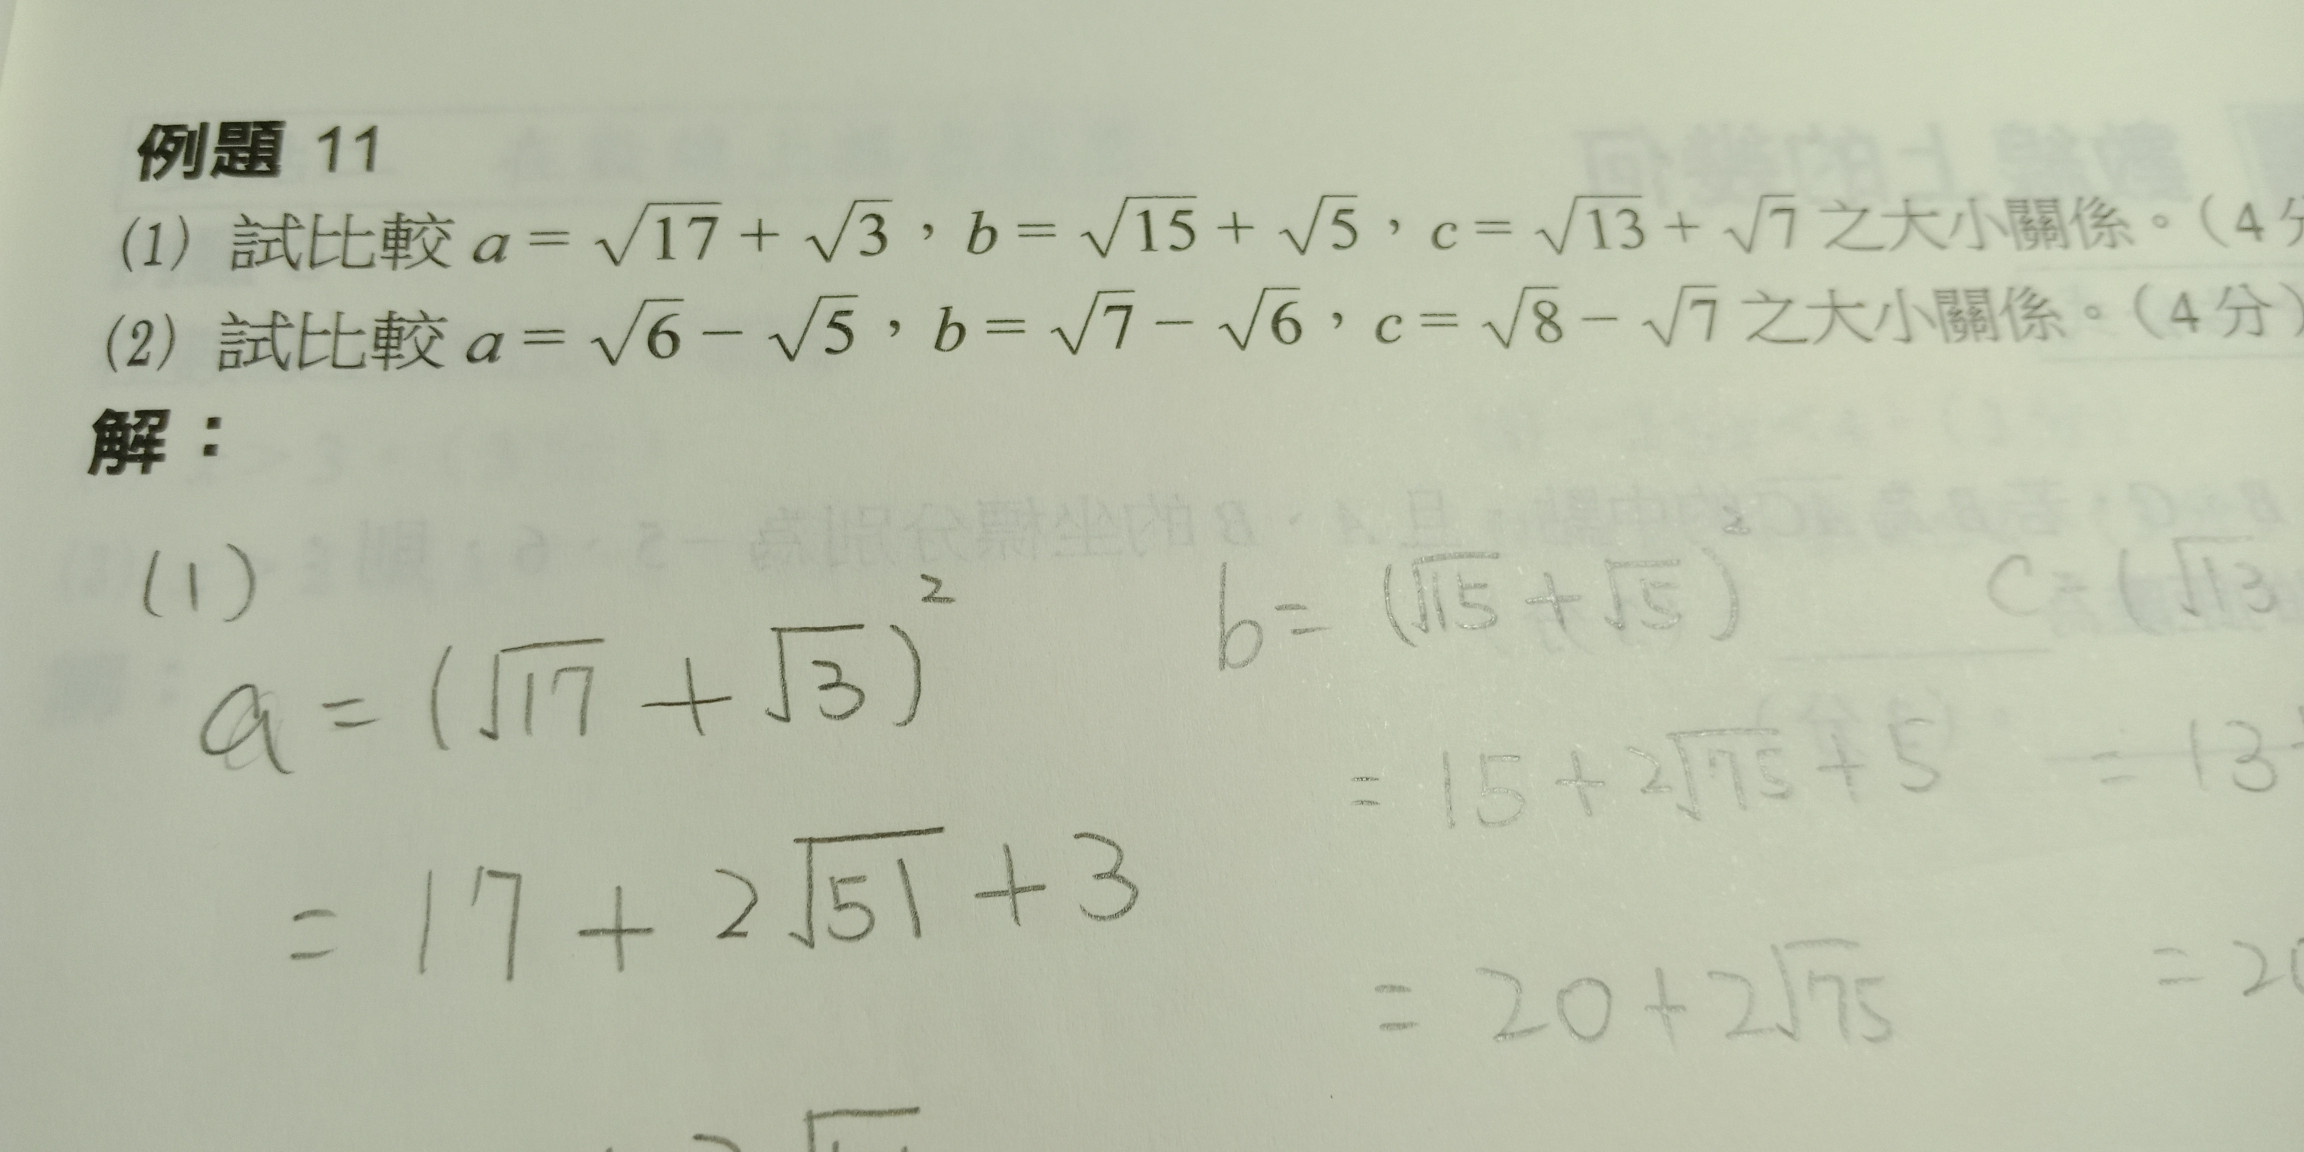 例題 11
(1) 試比較 a = √17 + √3，b = √15 + √5，c = √13 + √7 之大小關係。（4 分
(2) 試比較 a = √6 − √5，b = √7 − √6，c = √8 − √7 之大小關係。（4 分）
解：
(1)
a = (√17 + √3)²
= 17 + 2√51 + 3
b = (√15 + √5)²
= 15 + 2√75 + 5
= 20 + 2√75
C = (√13
= 13 +
= 20